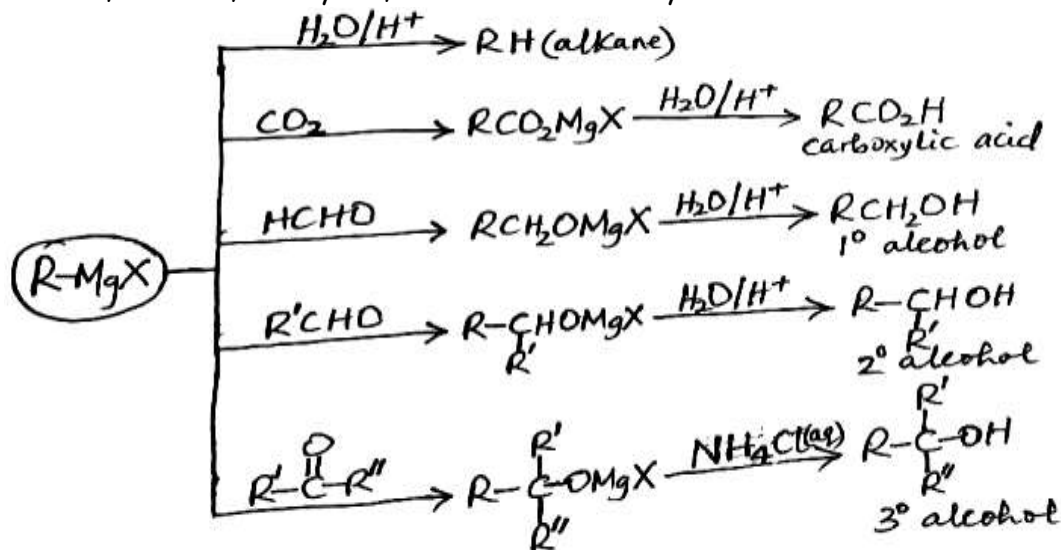 H₂O/H⁺ → RH (alkane)
CO₂ → RCO₂MgX H₂O/H⁺ → RCO₂H
carboxylic acid
HCHO → RCH₂OMgX H₂O/H⁺ → RCH₂OH
1° alcohol
R-MgX
R'CHO → R-CHOMgX H₂O/H⁺ → R-CHOH
R' R'
2° alcohol
O R' R'
R'-C-R'' → R-C-OMgX NH₄Cl(aq) → R-C-OH
R'' R''
3° alcohol